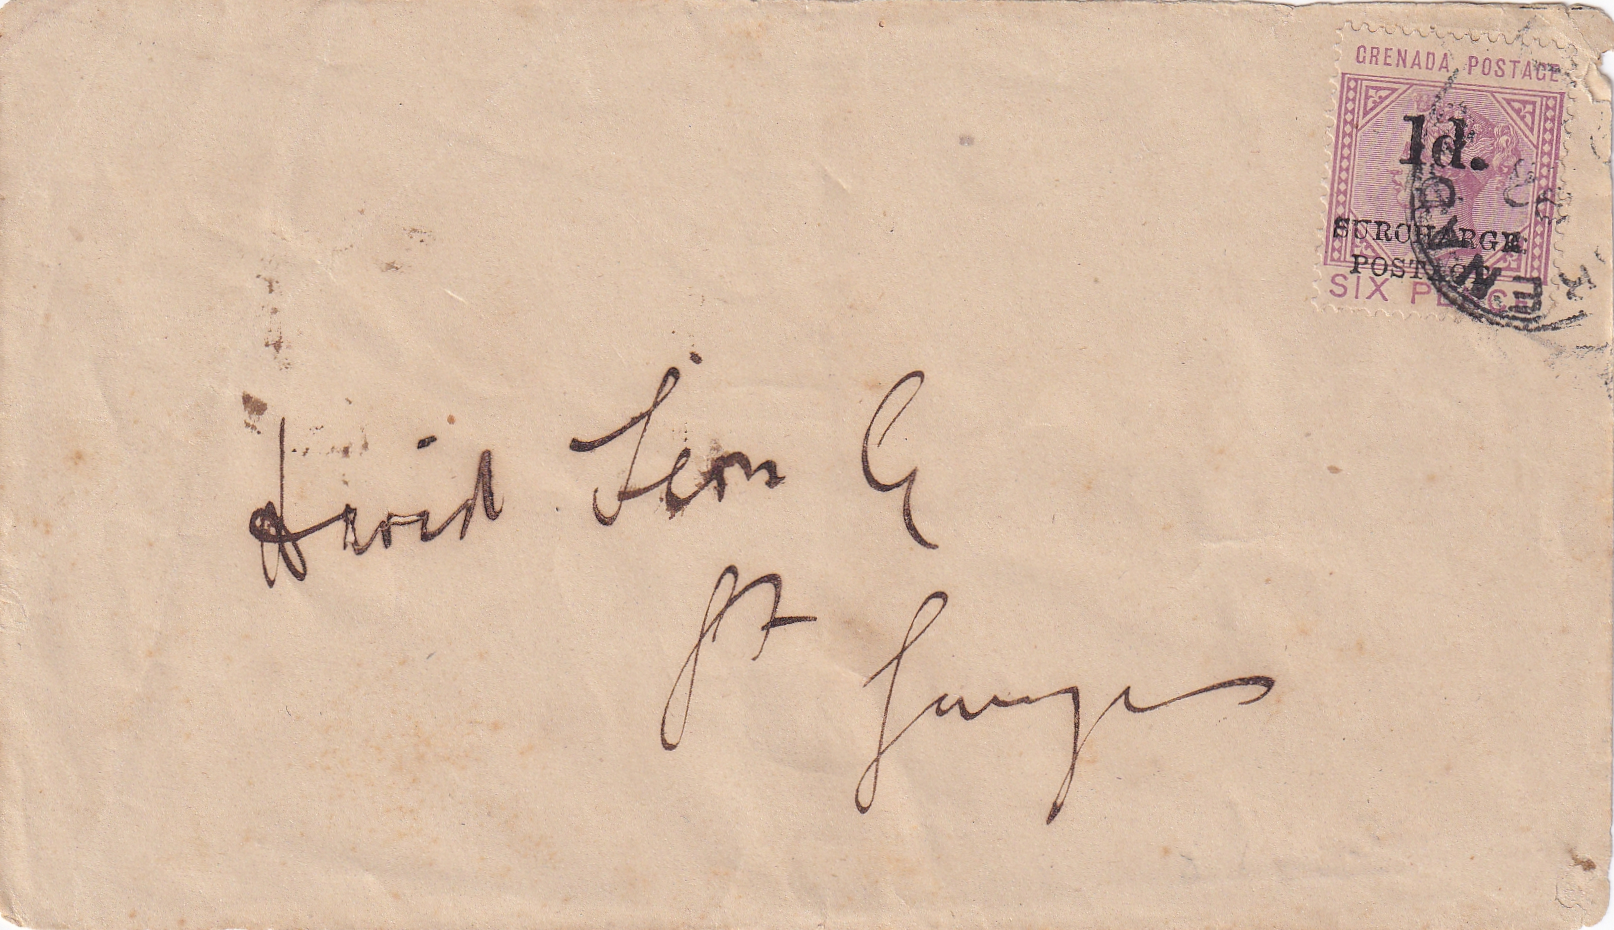 GRENADA POSTAGE
1d.
SURCHARGE
POSTAGE
SIX PENCE
David
St Georges